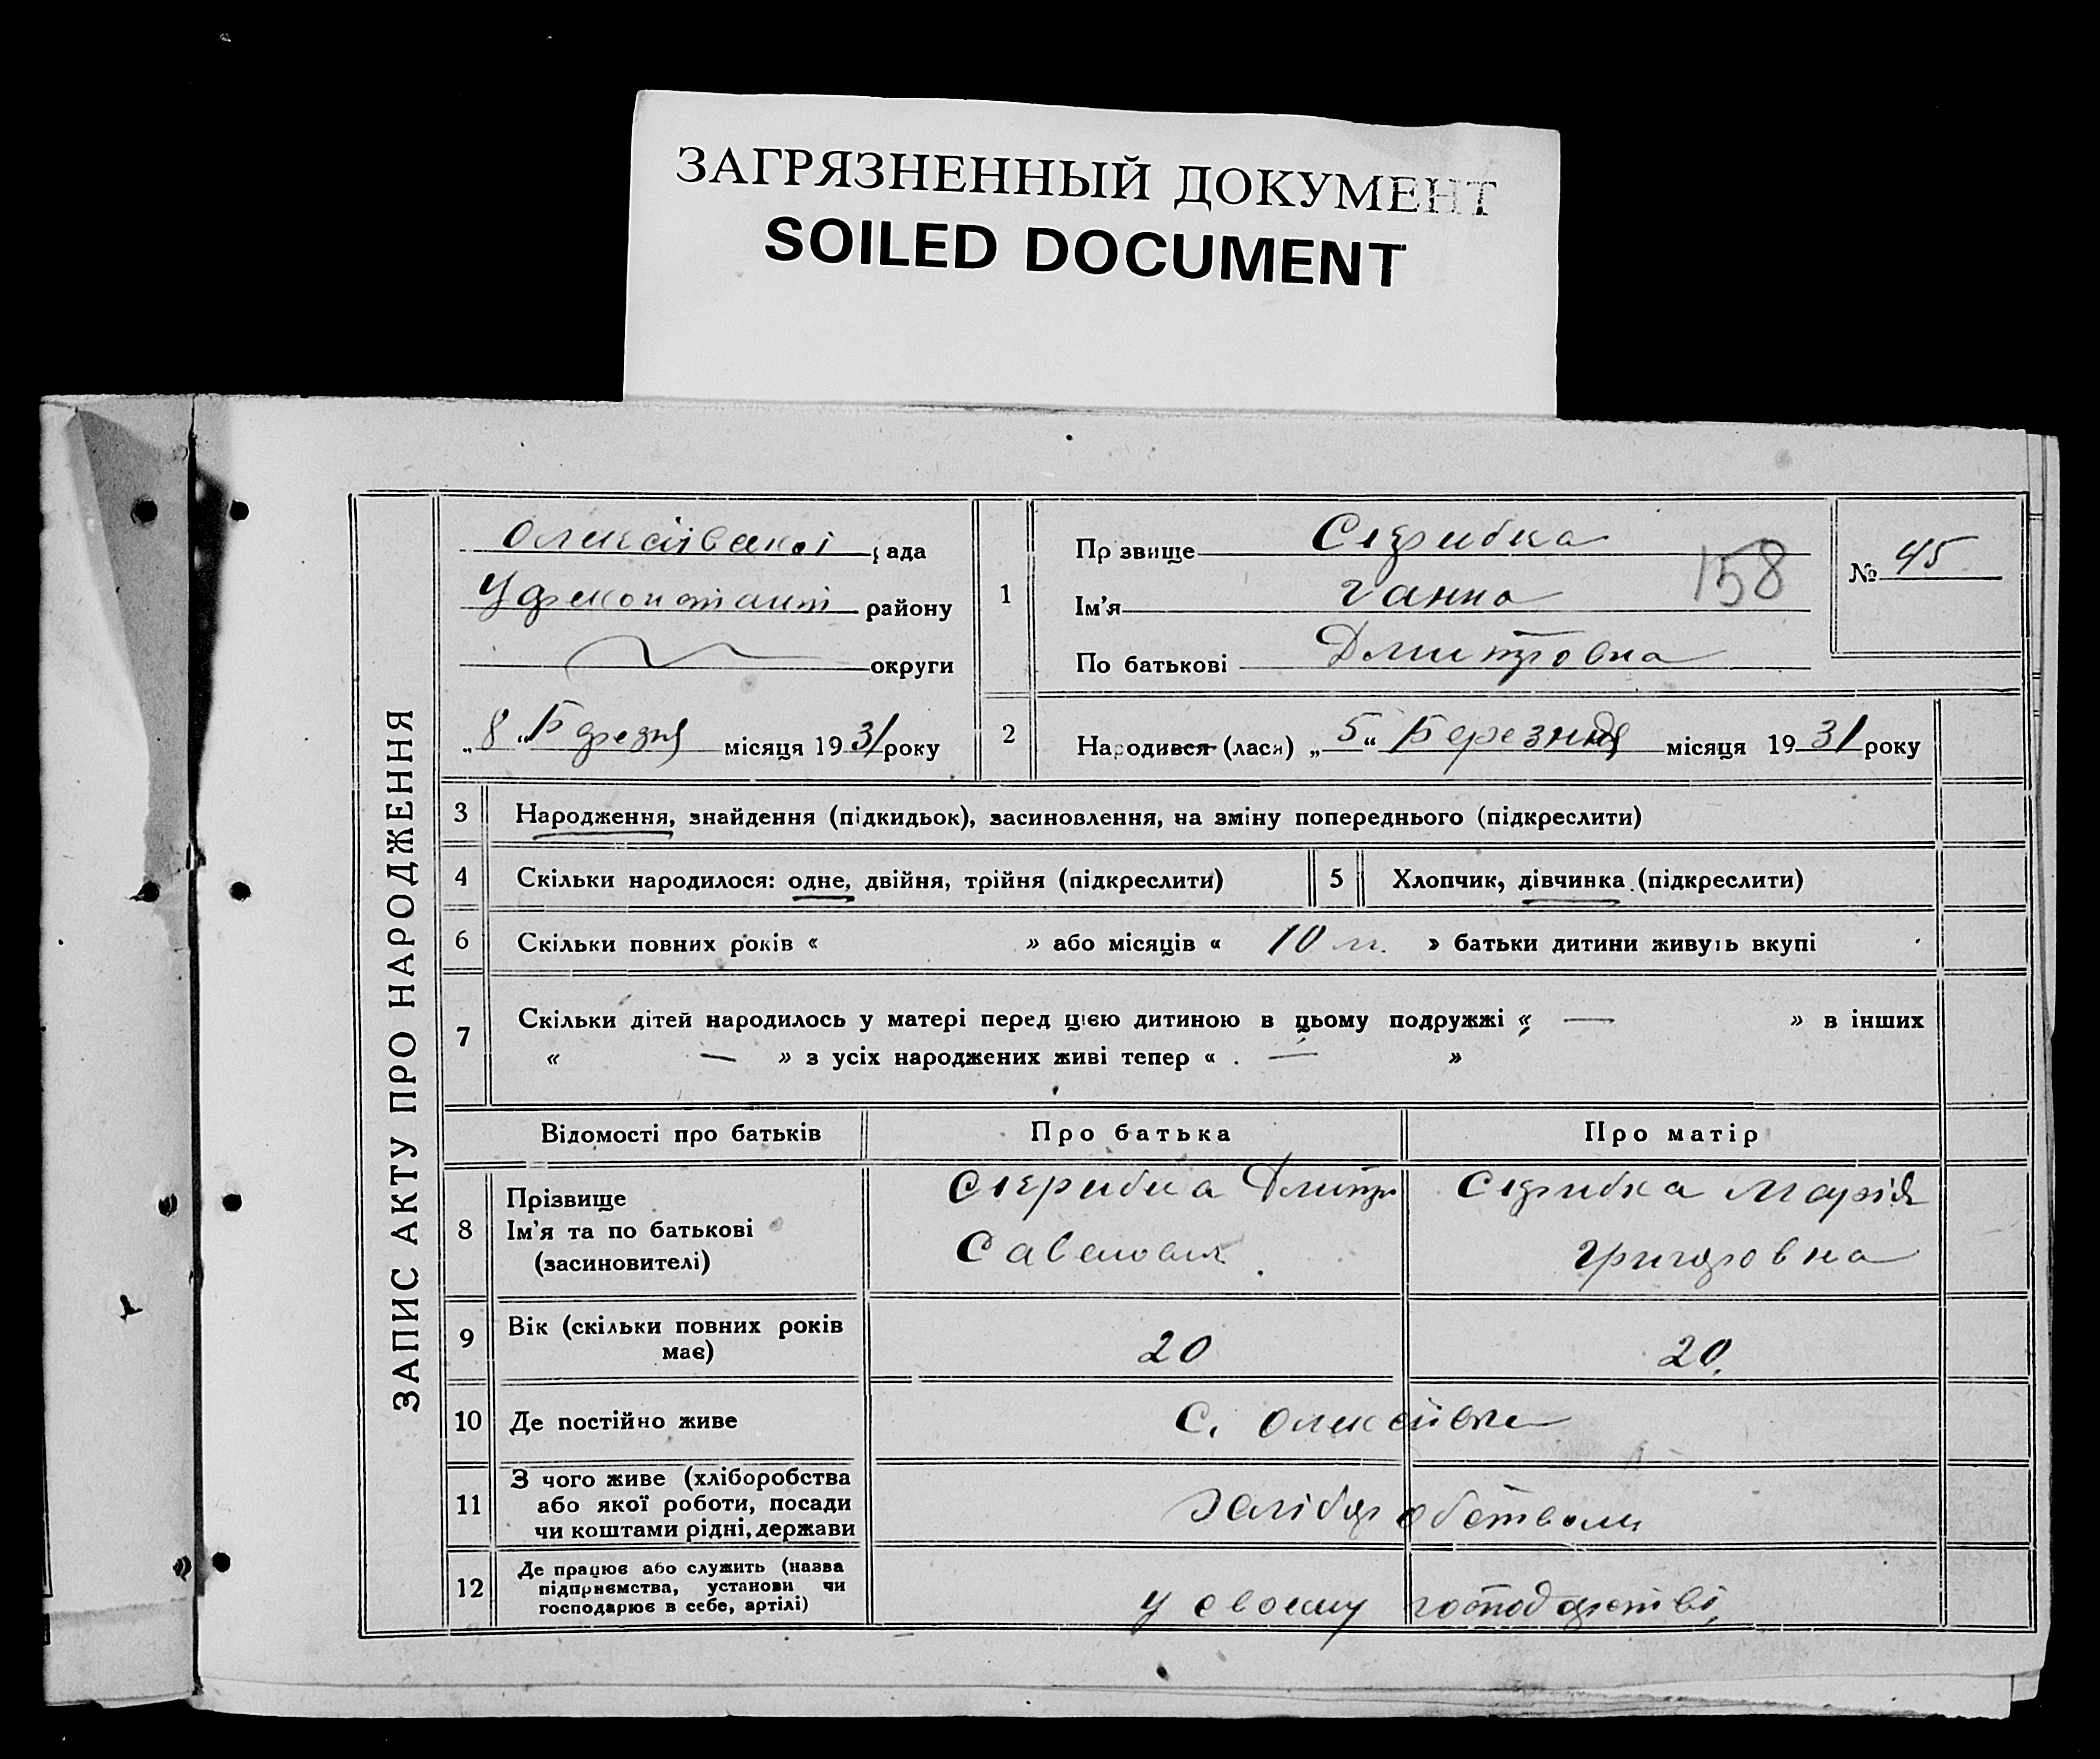 ЗАГРЯЗНЕННЫЙ ДОКУМЕНТ
SOILED DOCUMENT
ЗАПИС АКТУ ПРО НАРОДЖЕННЯ
рада
району
округи
„8“ Березня місяця 1931 року
1
Прізвище
Ім'я Ганна
По батькові Дмитровна
158
№ 45
2
Народився (лася) „5“ Березня місяця 1931 року
3 Народження, знайдення (підкидьок), засиновлення, на зміну попереднього (підкреслити)
4 Скільки народилося: одне, двійня, трійня (підкреслити)
5 Хлопчик, дівчинка (підкреслити)
6 Скільки повних років « » або місяців « 10 м. » батьки дитини живуть вкупі
7 Скільки дітей народилось у матері перед цією дитиною в цьому подружжі « — » в інших
« — » з усіх народжених живі тепер « — »
Відомості про батьків
Про батька
Про матір
8 Прізвище
Ім'я та по батькові
(засиновителі)
Дмитро
Марія
Григоровна
9 Вік (скільки повних років
має)
20
20
10 Де постійно живе
с. Олексіївка
11 З чого живе (хліборобства
або якої роботи, посади
чи коштами рідні, держави
12 Де працює або служить (назва
підприємства, установи чи
господарює в себе, артілі)
у своєму господарстві